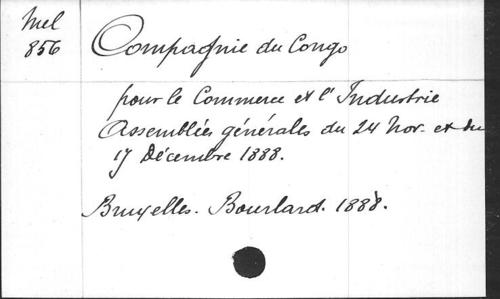 Mel
856
Compagnie du Congo
pour le Commerce et l'Industrie
Assemblées générales du 24 Nov. et du
17 Décembre 1888.
Bruxelles. Bourlard. 1888.